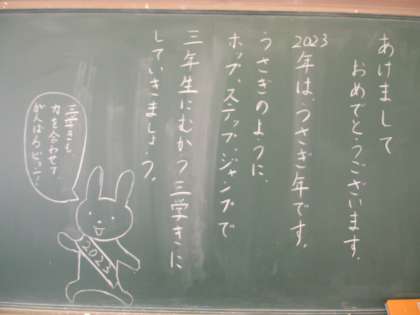 あけまして
おめでとうございます。
2023年は、うさぎ年です。
うさぎのように、
ホップ、ステップ、ジャンプで
三年生にむかう三学きに
していきましょう。
三学きも、
力を合わせて
がんばるピョン!
2023